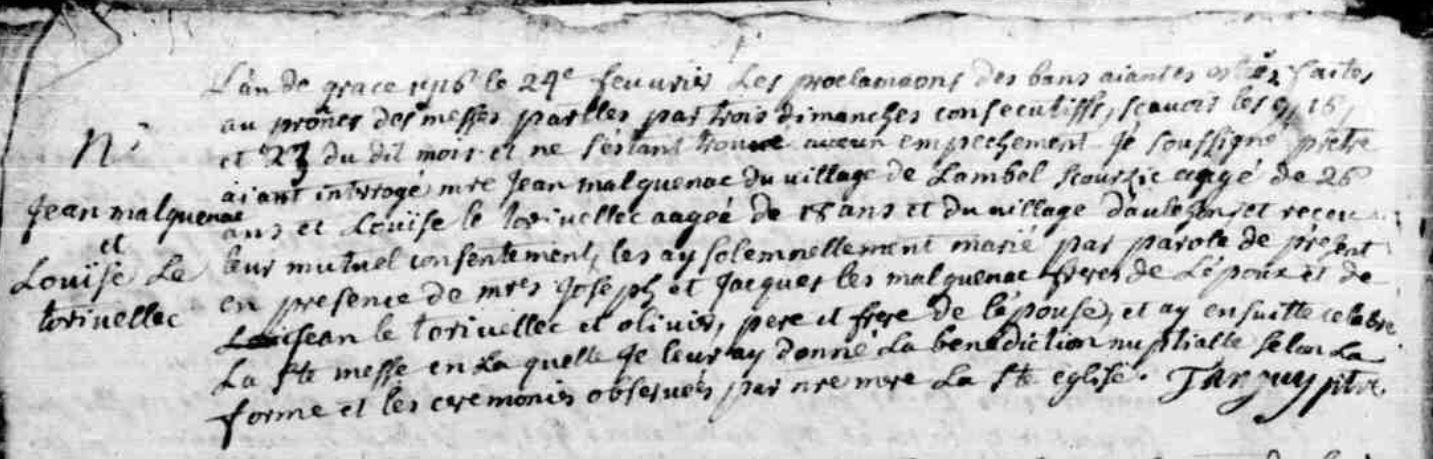 L'an de grace 1716 le 24e feuvrier les proclamaons des bans aiantes estées faites
au prônes des messes par trois dimanches consecutiffs, sçavoir les 9, 16,
et 23 du dit mois et ne s'estant trouvé aucun empechement Je soussigné prêtre
aiant interrogé mre Jean malquenac du village de Lambel aagé de 26
ans et Louïse le torivellec aageé de 18 ans et du village et receu
leur mutuel consentement, les ay solemnellement marié par parole de present
en presence de mres Joseph et Jacques les malquenac freres de L'époux et de
Jean le torivellec et olivier, pere et frere de l'épouse, et ay ensuitte celebré
La ste messe en La quelle Je leur ay donné La benediction nuptialle selon La
forme et les ceremonies observeés par nre mere La ste eglise. Tanguy ptre.
N
Jean malquenac
et
Louïse Le
torivellec